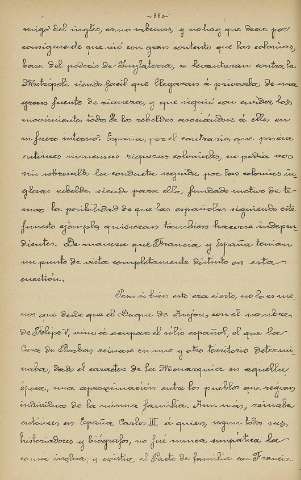 migó del inglés, como sabemos, y no hay que decir por
consiguiente que vió con gran contento que las colonias,
base del poderío de Inglaterra, se levantaran contra la
Metrópoli siendo fácil que llegaran á privarla de una
gran fuente de riqueza, y que siguió con avidez los
movimientos todos de los rebeldes asociándose á ellos en
su fuero interno. España, por el contrario, que poseía
entonces inmensas riquezas coloniales, no podía ver
sin sobresalto la conducta seguida por las colonias in-
glesas rebeldes, siendo para ella, fundado motivo de te-
mor la posibilidad de que las españolas siguiendo este
funesto ejemplo, quisieran también hacerse indepen-
dientes. De manera que Francia y España tenían
un punto de vista completamente distinto en esta
cuestión.
Pero si bien esto era cierto, no lo es me-
nos que desde que el Duque de Anjou, con el nombre
de Felipe V, vino á ocupar el solio español, el que la
Casa de Borbón reinase en uno y otro territorio determi-
naba, dado el carácter de la Monarquía en aquella
época, una aproximación entre los pueblos que regían
individuos de la misma familia. Aun más, reinaba
entonces en España Carlos III á quien, según todos sus
historiadores y biógrafos, no fué nunca simpática la
causa inglesa, y existía el Pacto de familia con Francia